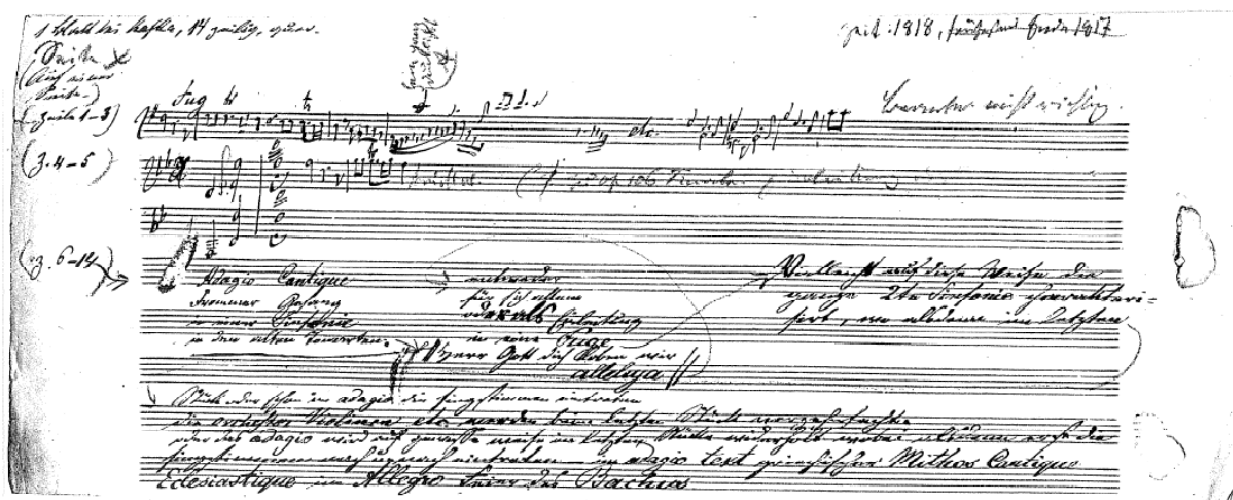 1 Blatt bei Kafka, 14 zeilig, quer.
Zeit: 1818, frühestens Ende 1817
Seite
(Auf einer
Seite-)
(Zeile 1-3)
Fug
tr
tr
etc.
(Z. 4-5)
op 106
(Z. 6-14)
Adagio Cantique
Frommer Gesang
in einer Sinfonie
in den alten Tonarten.
entweder
für sich allein
oder als Einleitung
in eine Fuge
Herr Gott dich loben wir
alleluja
Vielleicht auf diese Weise die
ganze 2te Sinfonie charakteri-
sirt, wo alsdenn im letzten
Stück oder schon im adagio die singstimmen eintreten
die orchester Violinen etc werden beim letzten Stück verzehnfacht
oder das adagio wird auf gewisse weise im letzten Stücke widerholt wobei alsdenn erst die
singstimmen nach u nach eintreten - im adagio text griechischer Mithos Cantique
Eclesiastique im Allegro Feier des Bachus